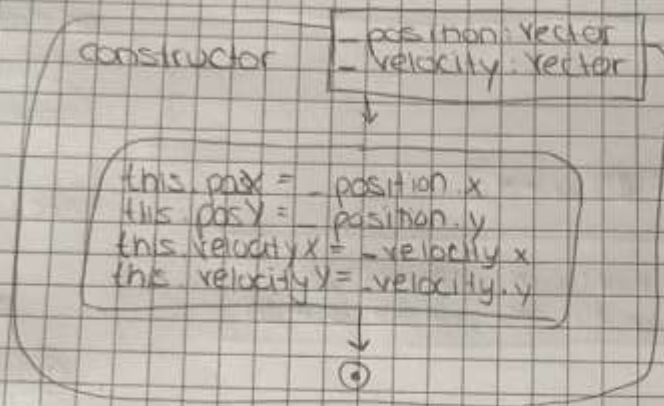 constructor
_position: vector
_velocity: vector
this.posX = _position.x
this.posY = _position.y
this.velocityX = _velocity.x
this.velocityY = _velocity.y